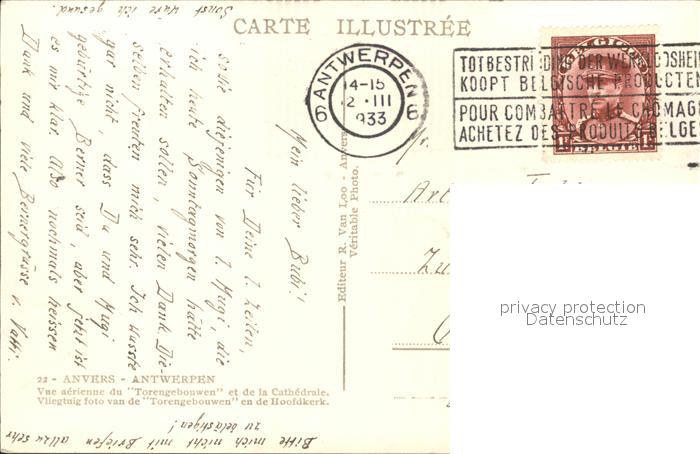 CARTE ILLUSTRÉE
ANTWERPEN
14-15
12 · III
1933
6 6
TOTBESTRIJDING DER WERKLOOSHEID
KOOPT BELGISCHE PRODUCTEN
POUR COMBATTRE LE CHÔMAGE
ACHETEZ DES PRODUITS BELGES
BELGIQUE
BELGIE
Mein lieber Bubi!
Für Deine l. Zeilen,
sowie diejenigen von l. Mugi, die
ich heute Sonntagmorgen hätte
erhalten sollen, vielen Dank. Die-
selben freuten mich sehr. Ich wusste
gar nicht dass Du und Mugi
gebürtige Berner seid, aber jetzt ist
es mir klar. Also nochmals heissen
Dank und viele Bernergrüsse v. Vatti.
Bitte mich nicht mit Briefen allzu sehr
zu belästigen!
Sonst wäre ich gesund.
Editeur R. Van Loo - Anvers
Véritable Photo.
22 - ANVERS - ANTWERPEN
Vue aérienne du "Torengebouwen" et de la Cathédrale.
Vliegtuig foto van de "Torengebouwen" en de Hoofdkerk.
privacy protection
Datenschutz